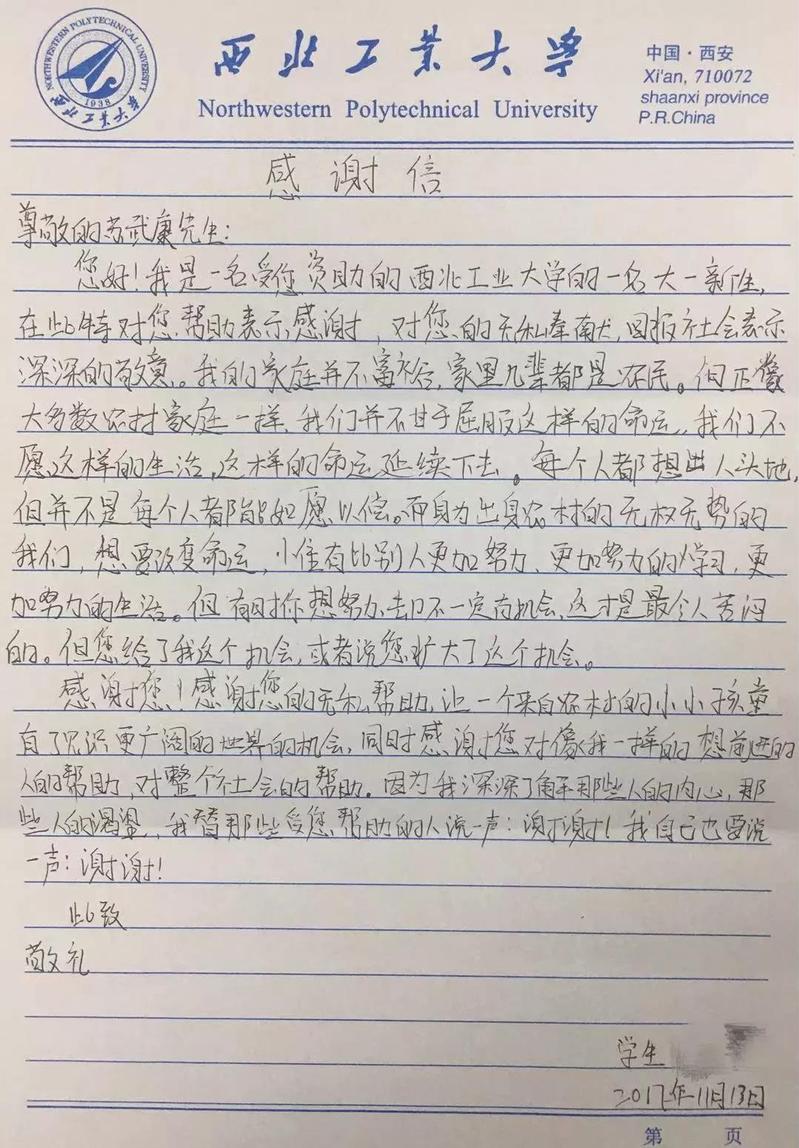 NORTHWESTERN POLYTECHNICAL UNIVERSITY
1938
西北工业大学
西北工业大学
Northwestern Polytechnical University
中国·西安
Xi'an, 710072
shaanxi province
P.R.China
感谢信
尊敬的苏武康先生:
您好!我是一名受您资助的西北工业大学的一名大一新生,
在此特对您帮助表示感谢,对您的无私奉献,回报社会表示
深深的敬意。我的家庭并不富裕,家里几辈都是农民。但正像
大多数农村家庭一样,我们并不甘于屈服这样的命运,我们不
愿这样的生活,这样的命运延续下去。每个人都想出人头地,
但并不是每个人都能如愿以偿。而身为出身农村的无权无势的
我们,想要改变命运,惟有比别人更加努力、更加努力的学习,更
加努力的生活。但有时你想努力,却不一定有机会,这才是最令人苦闷
的。但您给了我这个机会,或者说您扩大了这个机会。
感谢您!感谢您的无私帮助,让一个来自农村的小小孩童
有了见识更广阔的世界的机会,同时感谢您对像我一样的想前进的
人的帮助,对整个社会的帮助。因为我深深了解那些人的内心,那
些人的渴望,我替那些受您帮助的人说一声:谢谢!我自己也要说
一声:谢谢!
此致
敬礼
学生
2017年11月13日
第 页